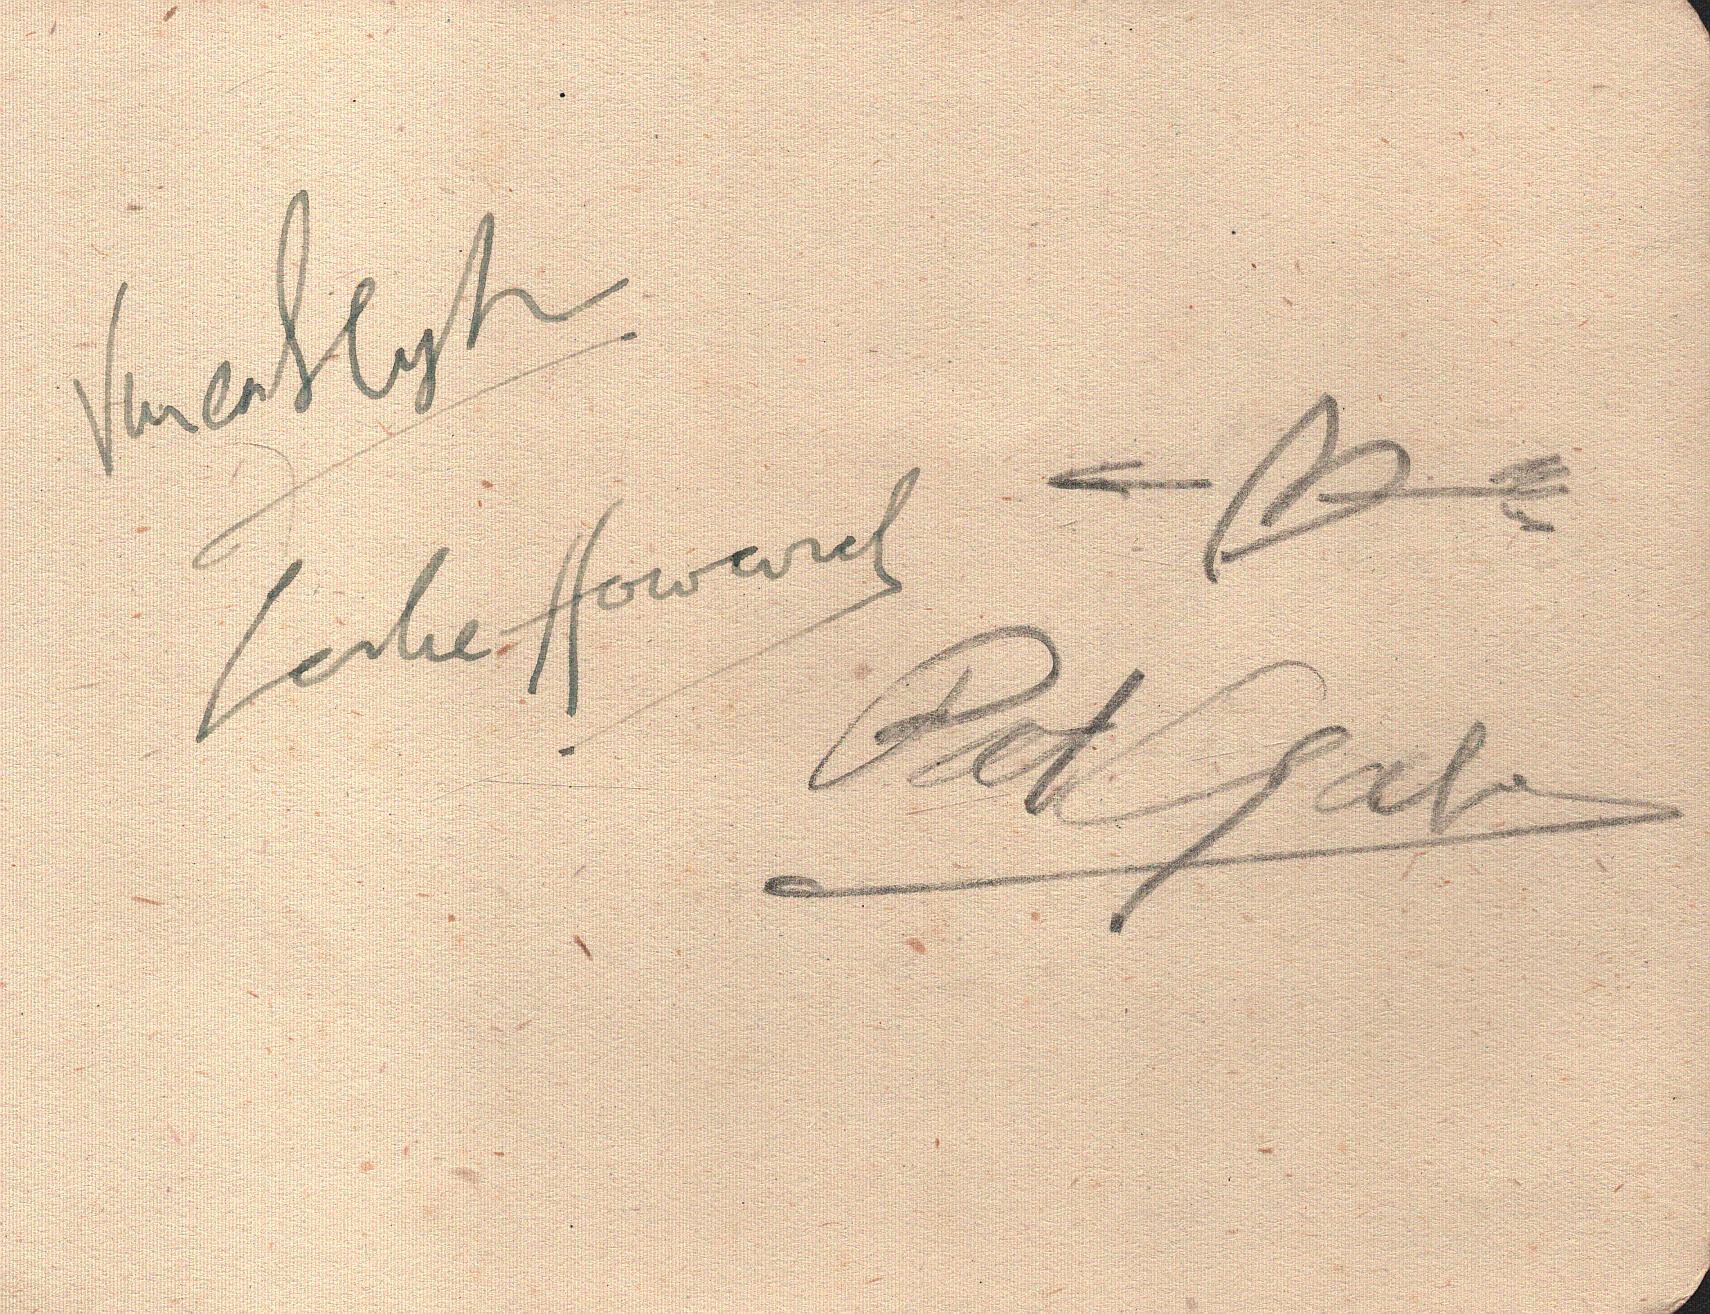 Vivien Leigh
Leslie Howard
Pat